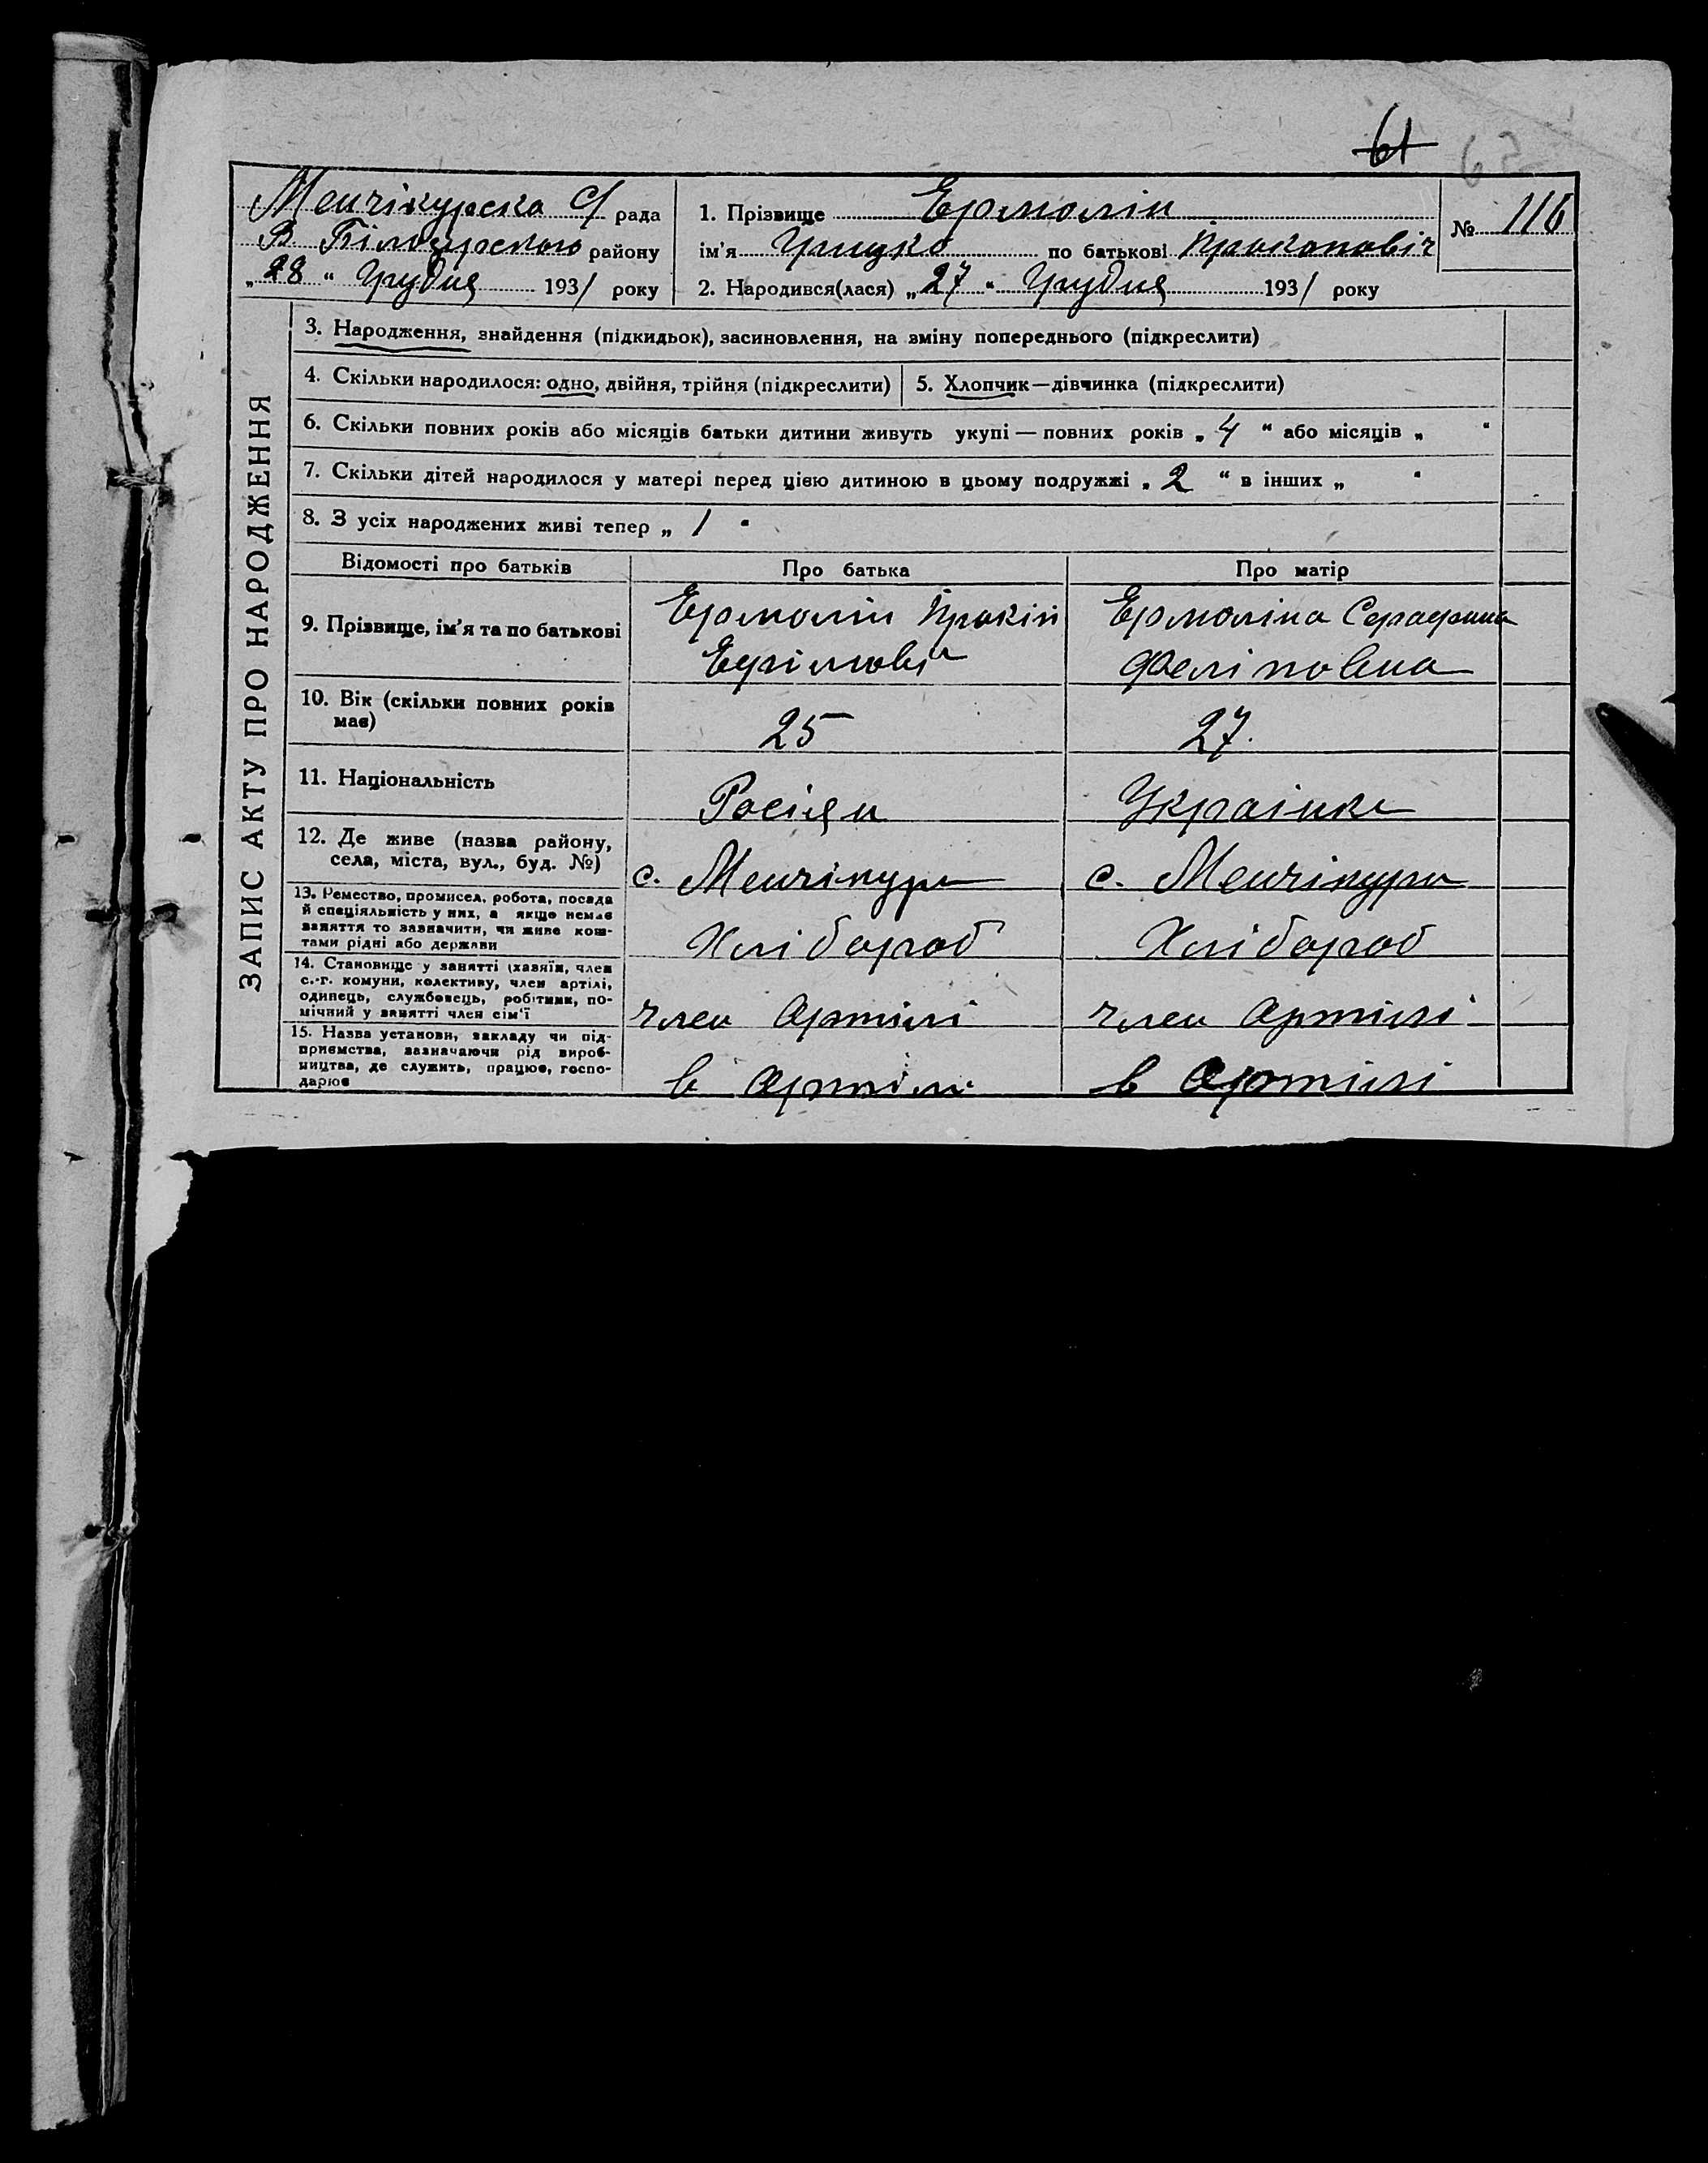 61 65
Менчікурска С/ рада
В Білозірского району
„28“ Грудня 1931 року
1. Прізвище Ермолін
ім'я Грицко по батькові Прокоповіч
2. Народився(лася) „27“ Грудня 1931 року
№ 116
ЗАПИС АКТУ ПРО НАРОДЖЕННЯ
3. Народження, знайдення (підкидьок), засиновлення, на зміну попереднього (підкреслити)
4. Скільки народилося: одно, двійня, трійня (підкреслити) 5. Хлопчик—дівчинка (підкреслити)
6. Скільки повних років або місяців батьки дитини живуть укупі — повних років „4“ або місяців „ “
7. Скільки дітей народилося у матері перед цією дитиною в цьому подружжі „2“ в інших „ “
8. З усіх народжених живі тепер „1“
Відомості про батьків Про батька Про матір
9. Прізвище, ім'я та по батькові
Ермолін Прокіп
Ефімовіч
Ермоліна Серафима
Феліповна
10. Вік (скільки повних років
має)
25 27.
11. Національність
Росіян Українка
12. Де живе (назва району,
села, міста, вул., буд. №)
с. Менчікури с. Менчікури
13. Ремество, промисел, робота, посада
й спеціяльність у них, а якщо немає
заняття то зазначити, чи живе кош-
тами рідні або держави
Хлібороб Хлібороб
14. Становище у занятті (хазяїн, член
с.-г. комуни, колективу, член артілі,
одинець, службовець, робітник, по-
мічний у занятті член сім'ї
член Артілі член Артілі
15. Назва установи, закладу чи під-
приємства, зазначаючи рід вироб-
ництва, де служить, працює, госпо-
дарює
в Артілі в Артілі